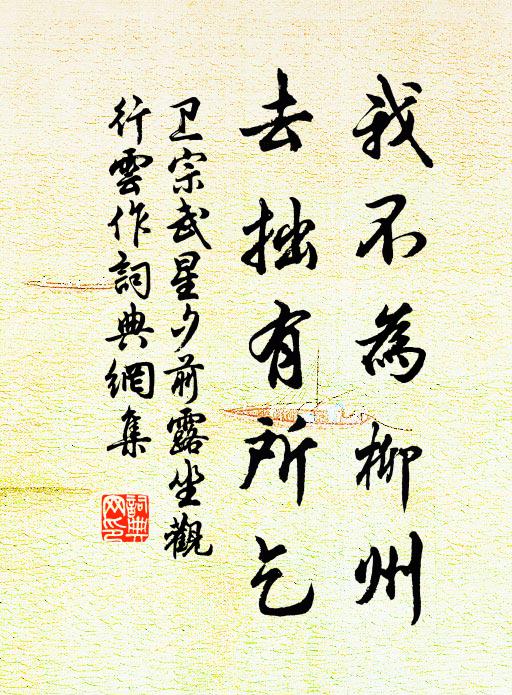 我不為柳州
去拙有所乞
卫宗武星夕前露坐觀
行雲作詞典網集
詞典網印